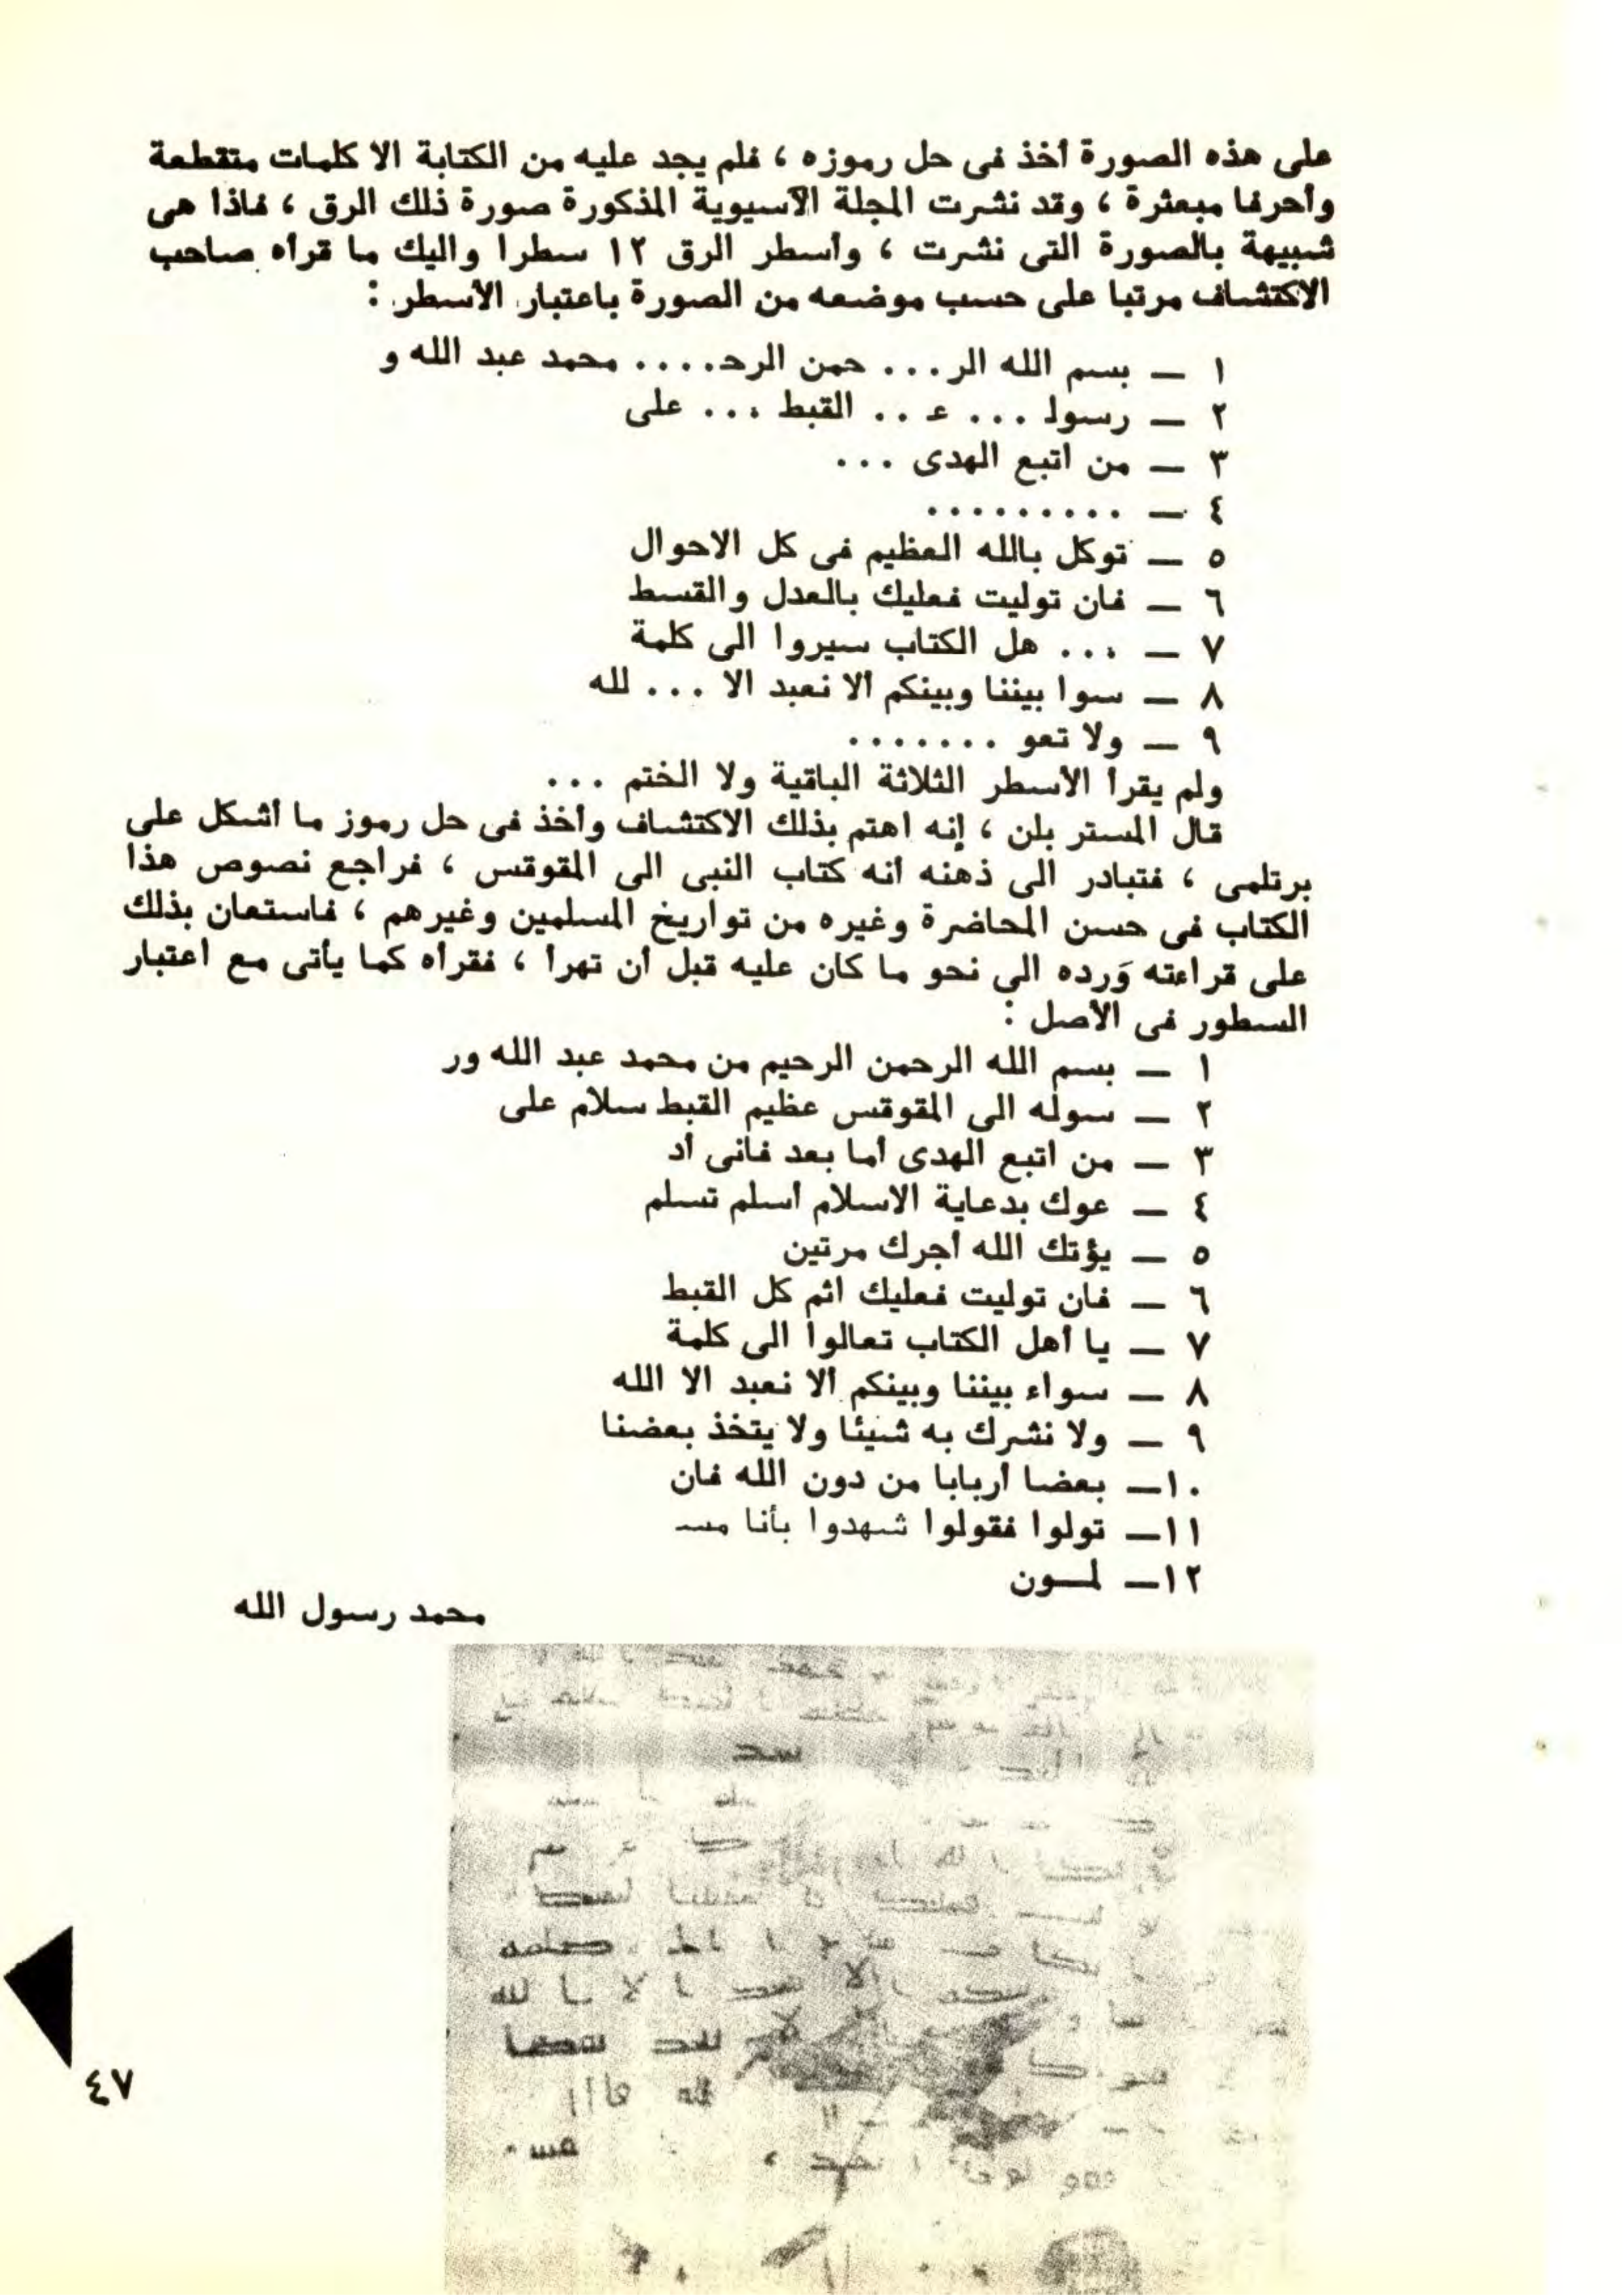 على هذه الصورة أخذ فى حل رموزه ، فلم يجد عليه من الكتابة الا كلمات متقطعة
وأحرفا مبعثرة ، وقد نشرت المجلة الآسيوية المذكورة صورة ذلك الرق ، فاذا هى
شبيهة بالصورة التى نشرت ، وأسطر الرق ١٢ سطرا واليك ما قرأه صاحب
الاكتشاف مرتبا على حسب موضعه من الصورة باعتبار الأسطر :
١ — بسم الله الر... حمن الرحـ.... محمد عبد الله و
٢ — رسولـ ... عـ .. القبط ... على
٣ — من اتبع الهدى ...
٤ — .........
٥ — توكل بالله العظيم فى كل الاحوال
٦ — فان توليت فعليك بالعدل والقسط
٧ — ... هل الكتاب سيروا الى كلمة
٨ — سوا بيننا وبينكم ألا نعبد الا ... لله
٩ — ولا تعو .......
ولم يقرأ الأسطر الثلاثة الباقية ولا الختم ...
قال المستر بلن ، إنه اهتم بذلك الاكتشاف وأخذ فى حل رموز ما أشكل على
برتلمى ، فتبادر الى ذهنه أنه كتاب النبى الى المقوقس ، فراجع نصوص هذا
الكتاب فى حسن المحاضرة وغيره من تواريخ المسلمين وغيرهم ، فاستعان بذلك
على قراءته وَرده الى نحو ما كان عليه قبل أن تهرأ ، فقرأه كما يأتى مع اعتبار
السطور فى الأصل :
١ — بسم الله الرحمن الرحيم من محمد عبد الله ور
٢ — سوله الى المقوقس عظيم القبط سلام على
٣ — من اتبع الهدى أما بعد فانى أد
٤ — عوك بدعاية الاسلام أسلم تسلم
٥ — يؤتك الله أجرك مرتين
٦ — فان توليت فعليك اثم كل القبط
٧ — يا أهل الكتاب تعالوا الى كلمة
٨ — سواء بيننا وبينكم ألا نعبد الا الله
٩ — ولا نشرك به شيئا ولا يتخذ بعضنا
١٠— بعضا أربابا من دون الله فان
١١— تولوا فقولوا شهدوا بأنا مسـ
١٢— لمـون
محمد رسول الله
٤٧